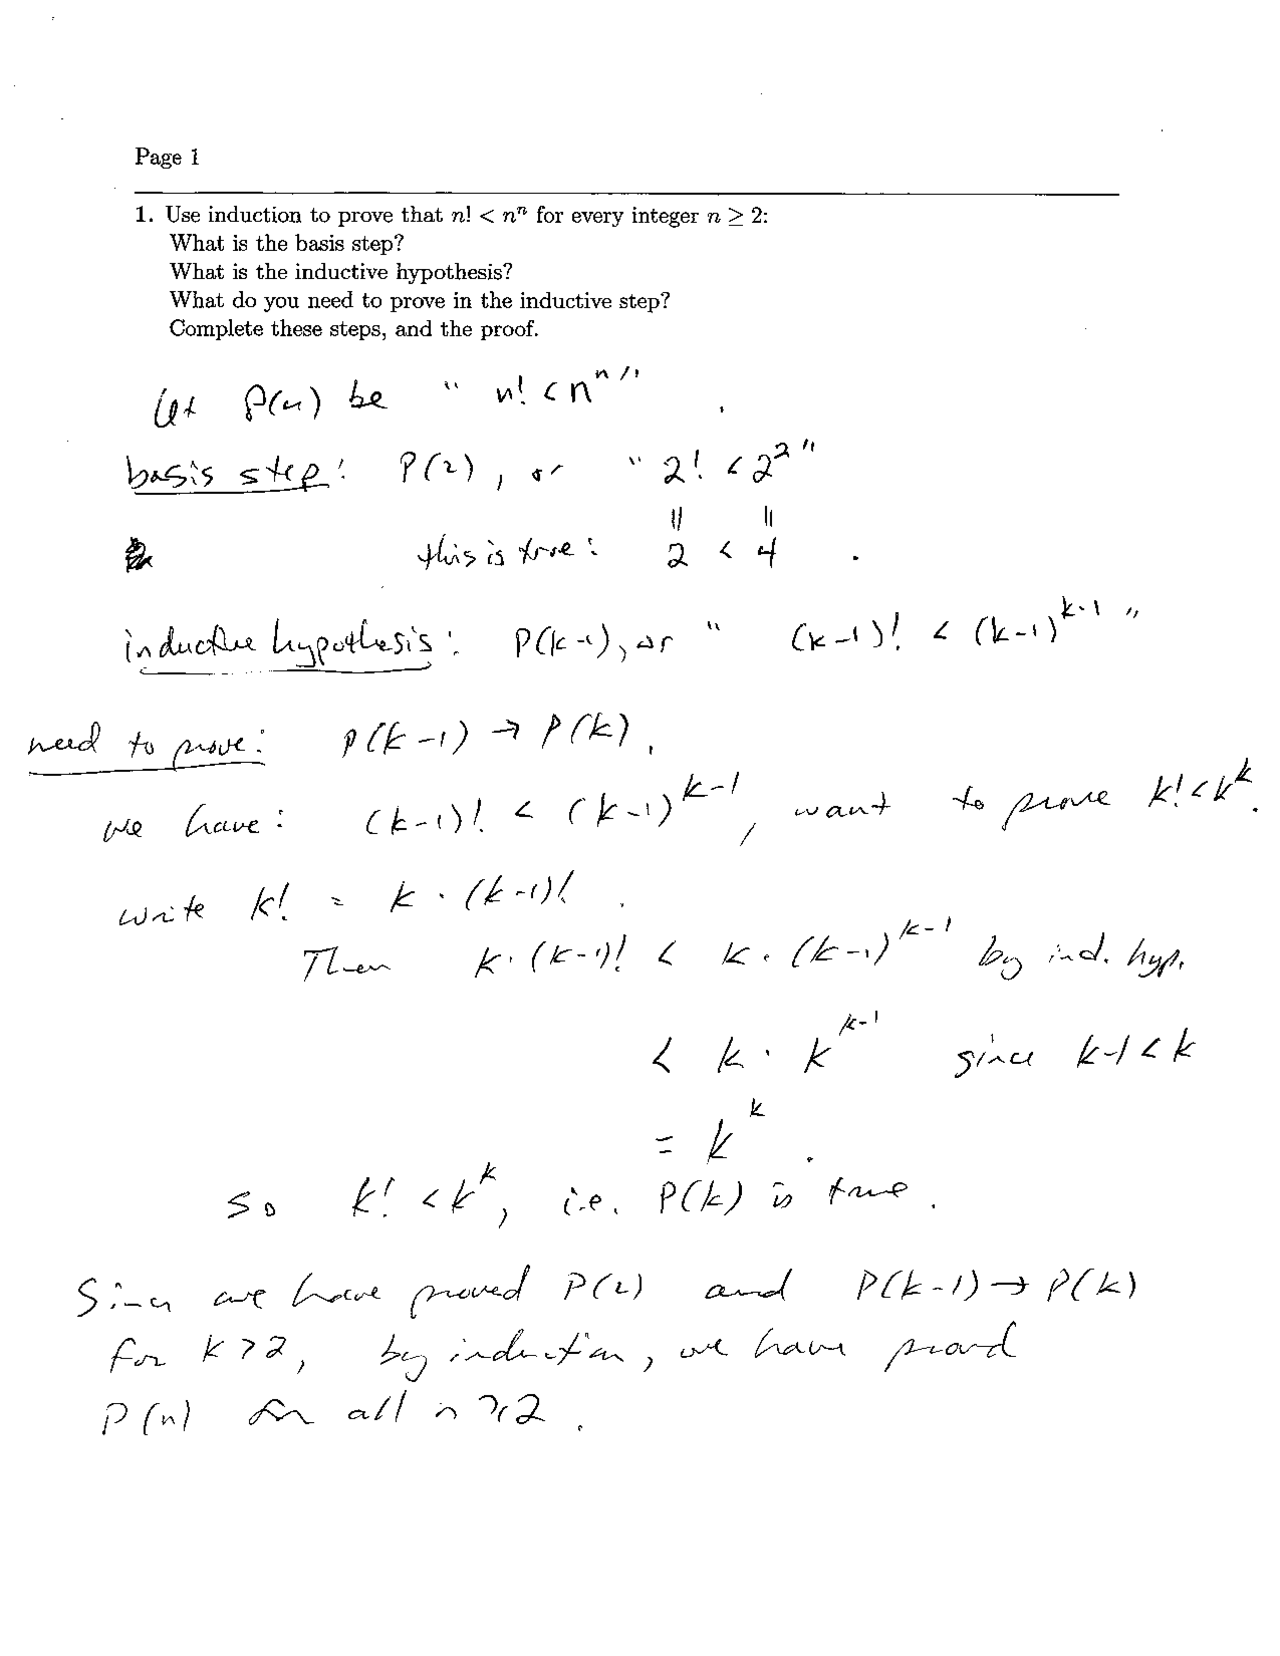 Page 1
1. Use induction to prove that n! < nⁿ for every integer n ≥ 2:
What is the basis step?
What is the inductive hypothesis?
What do you need to prove in the inductive step?
Complete these steps, and the proof.
Let P(n) be " n! < nⁿ " .
basis step: P(2), or " 2! < 2² "
|| ||
this is true: 2 < 4 .
inductive hypothesis: P(k-1), or " (k-1)! < (k-1)^{k-1} "
need to prove: P(k-1) → P(k).
we have: (k-1)! < (k-1)^{k-1}, want to prove k! < k^k.
write k! = k · (k-1)! .
Then k · (k-1)! < k · (k-1)^{k-1} by ind. hyp.
< k · k^{k-1} since k-1 < k
= k^k .
so k! < k^k, i.e. P(k) is true.
Since we have proved P(2) and P(k-1) → P(k)
for k > 2, by induction, we have proved
P(n) for all n ≥ 2 .